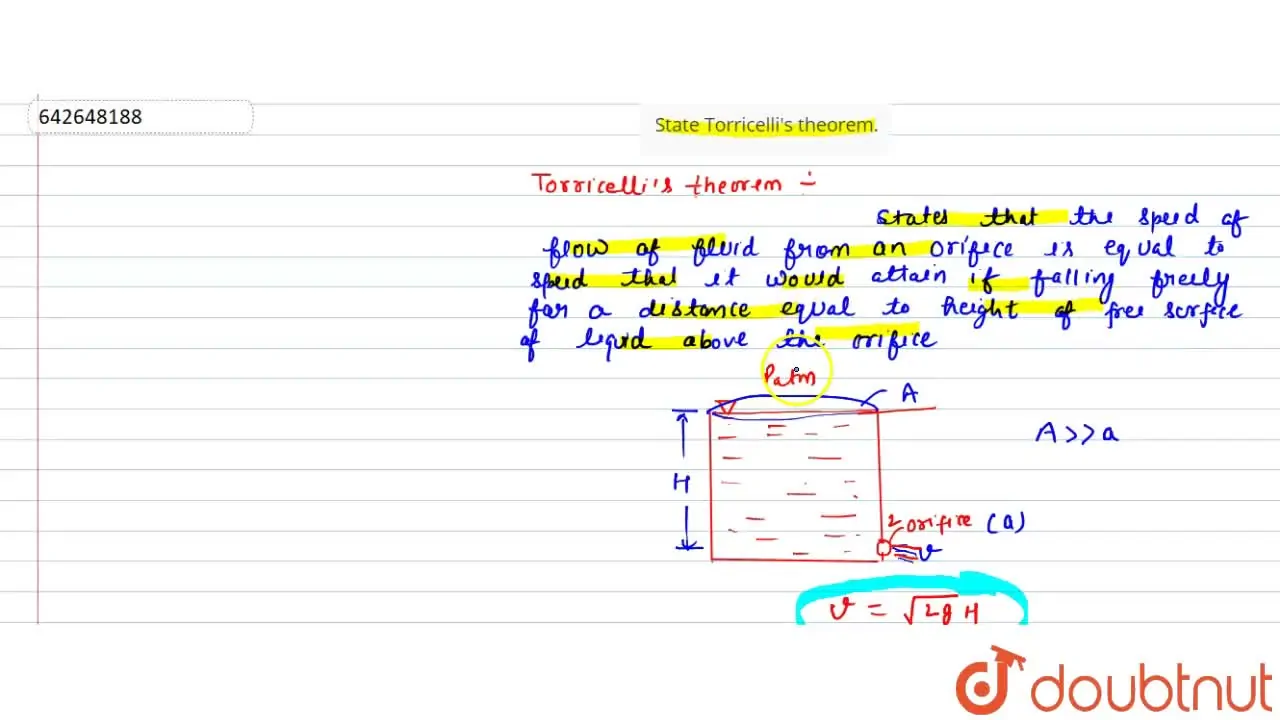 642648188
State Torricelli's theorem.
Torricelli's theorem :-
states that the speed of
flow of fluid from an orifice is equal to
speed that it would attain if falling freely
for a distance equal to height of free surfice
of liquid above the orifice
Patm
A
A >> a
H
orifice (a)
v
v = √2gH
doubtnut